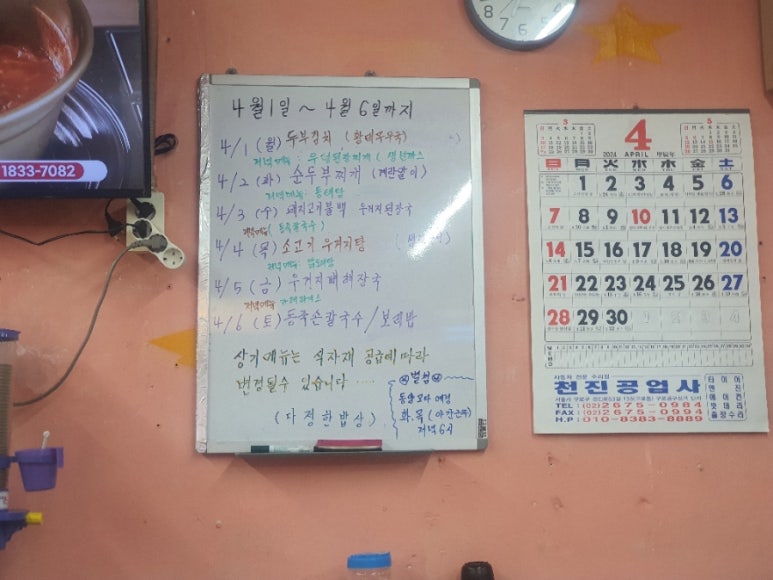 1833-7082
4월1일 ~ 4월 6일까지
4/1 (월) 두부김치 (황태무우국)
저녁메뉴 : 우렁된장찌개 (생선까스
4/2 (화) 순두부찌개 (계란말이)
저녁메뉴 : 동태탕
4/3 (수) 돼지고기불백 우거지된장국
저녁메뉴
4/4 (목) 소고기 우거지탕
저녁메뉴 :
4/5 (금) 우거지뼈해장국
저녁메뉴
4/6 (토) 동죽손칼국수 / 보리밥
상기메뉴는 식자재 공급에따라
변경될수 있습니다 .....
(다정한밥상)
화.목 (야간근무)
저녁 6시
3 4 5
2024 APRIL 甲辰年
日 月 火 水 木 金 土
1 2 3 4 5 6
7 8 9 10 11 12 13
14 15 16 17 18 19 20
21 22 23 24 25 26 27
28 29 30 1 2 3 4
자동차 전문 수리점
천진공업사
TEL : (02) 2675-0984
FAX : (02) 2675-0994
H.P : 010-8383-8889
타이어
엔진
에어컨
밧데리
출장수리